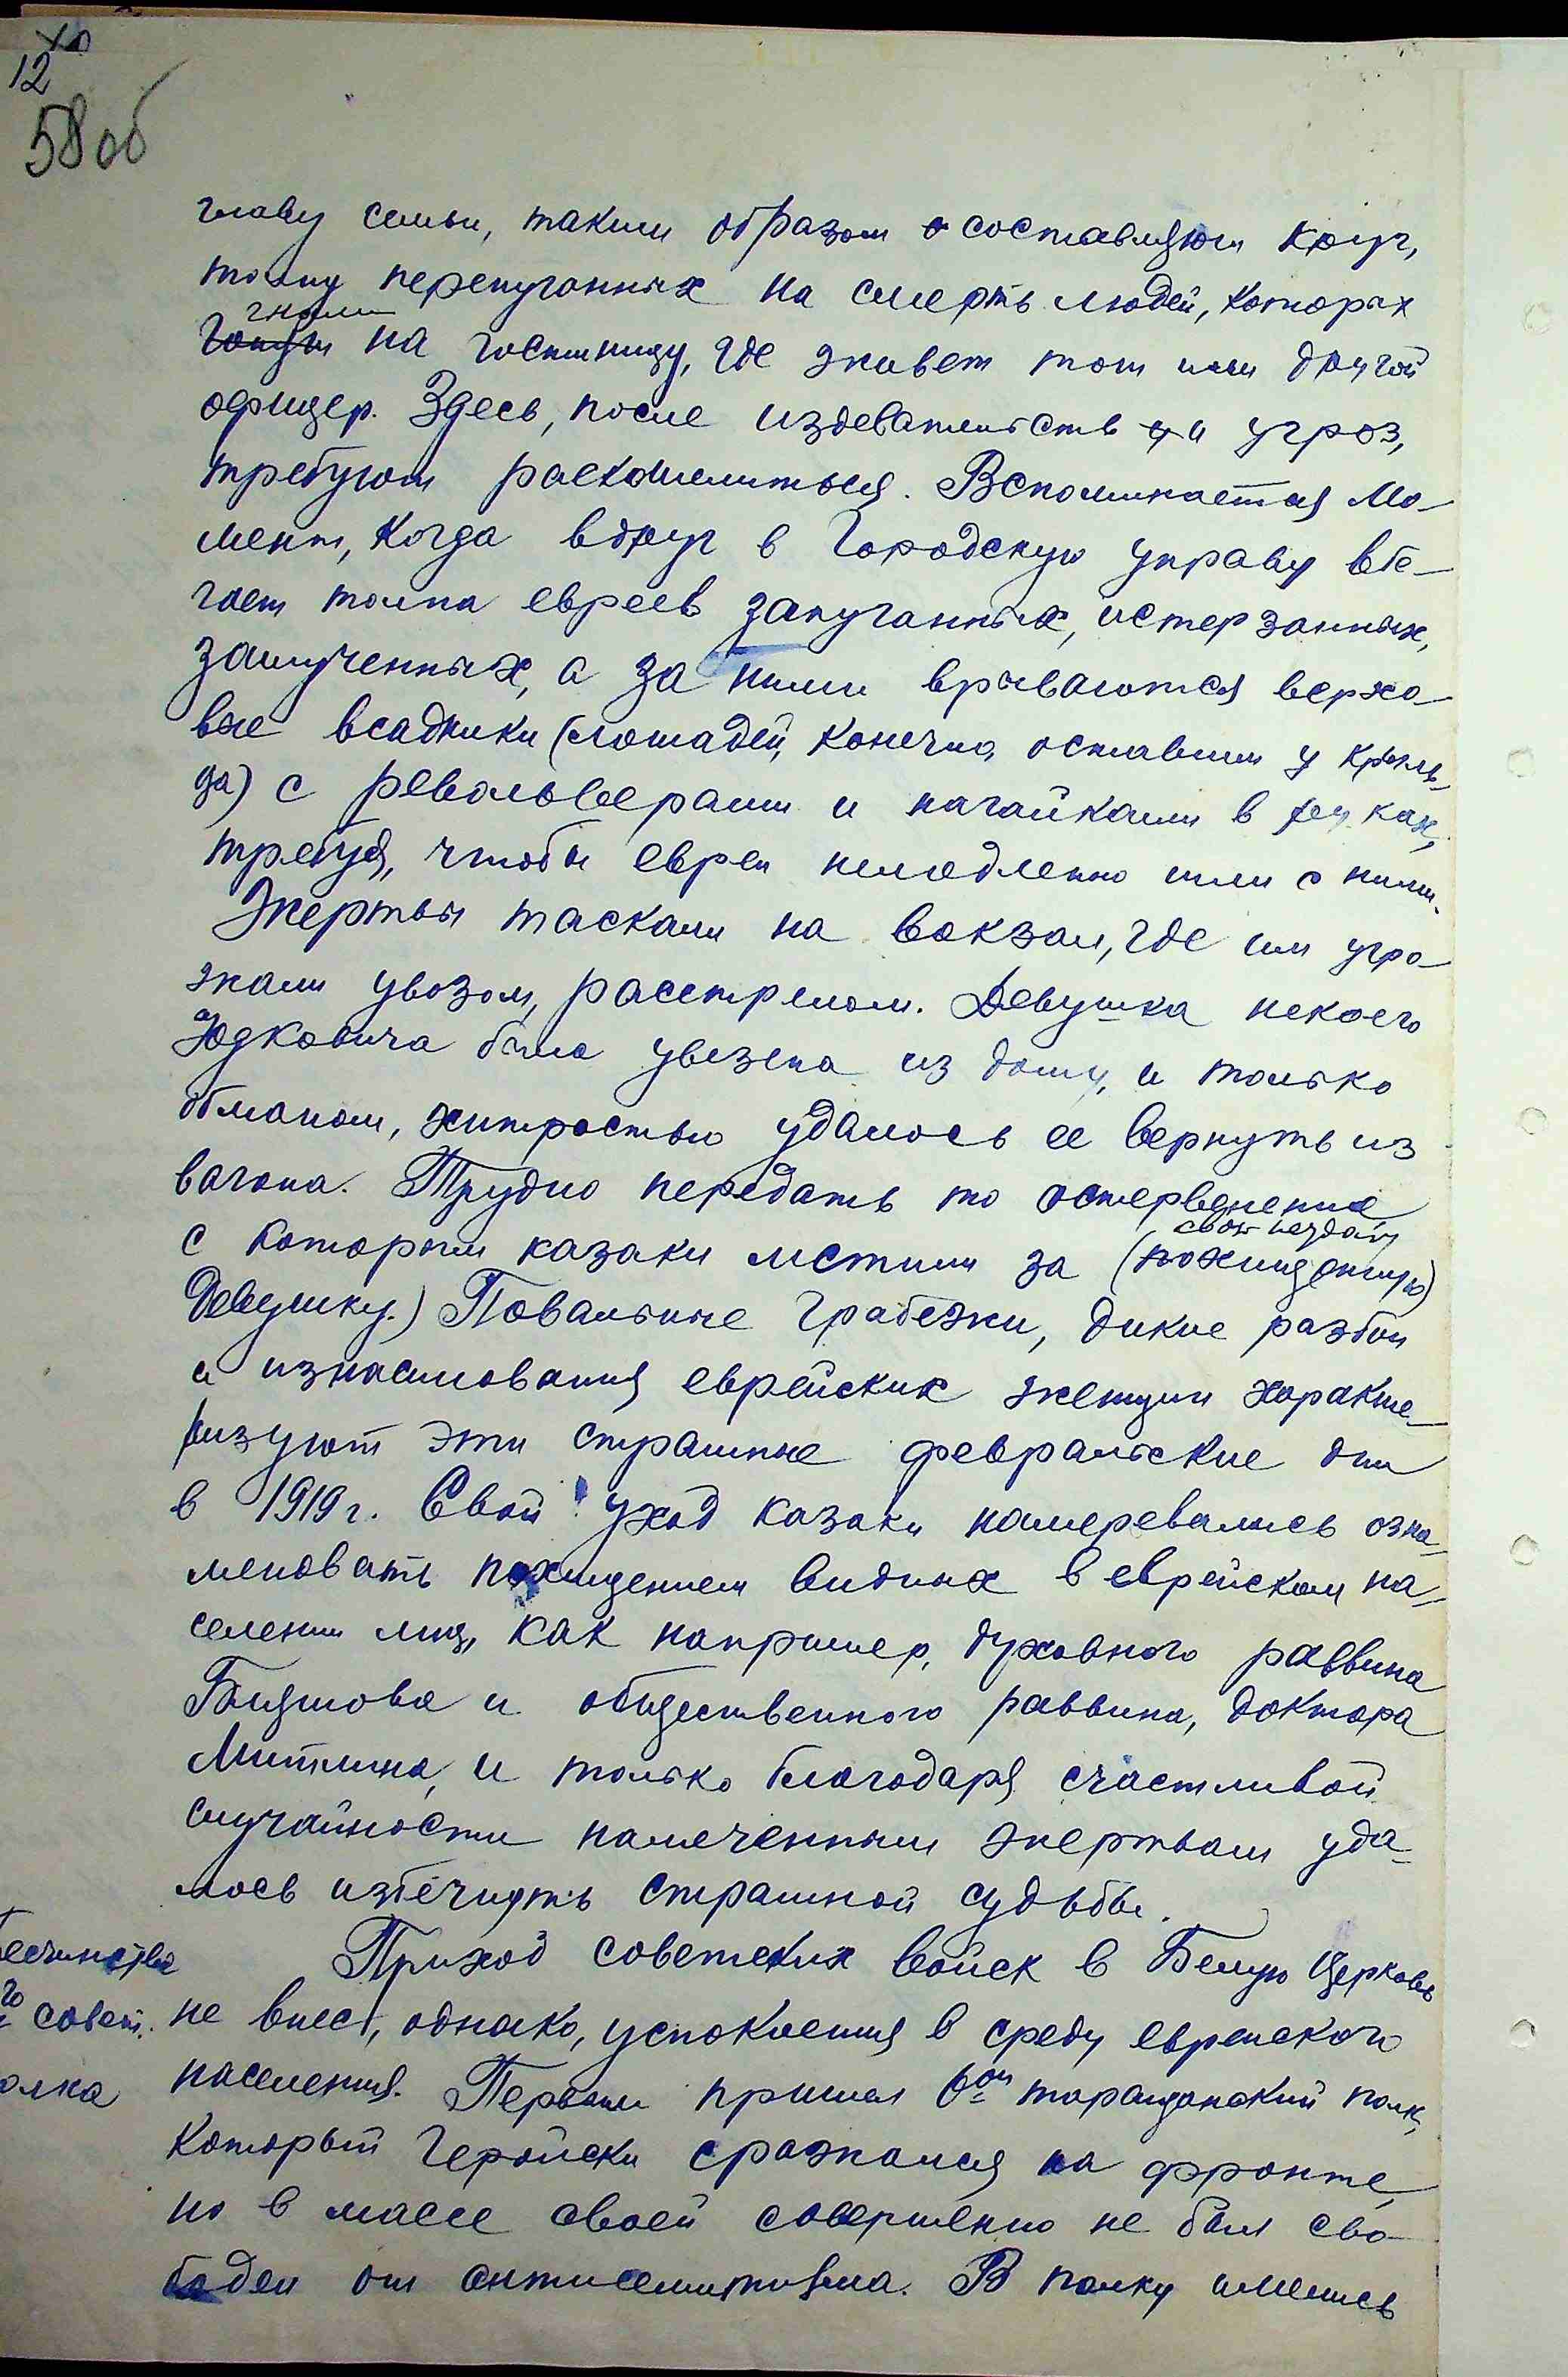 12
58 об
главу семьи, таким образом составляют круг,
толпу перепуганных на смерть людей, которых
гнали
на гостиницу, где живет тот или другой
офицер. Здесь, после издевательств и угроз,
требуют раскошелиться. Вспоминается мо-
мент, когда вдруг в Городскую управу вбе-
гает толпа евреев запуганных, истерзанных,
замученных, а за ними врываются верхо-
вые всадники (лошадей, конечно, оставили у крыль-
ца) с револьверами и нагайками в руках,
требуя, чтобы евреи немедленно шли с ними.
Жертвы таскали на вокзал, где им угро-
жали увозом, расстрелом. Девушка некоего
Юдковича была увезена из дому, и только
обманом, хитростью удалось ее вернуть из
вагона. Трудно передать то остервенение
свою неудачу
с которым казаки мстили за (похищенную)
девушку.) Повальные грабежи, дикие разбои
и изнасилования еврейских женщин характе-
ризуют эти страшные февральские дни
в 1919 г. Свой уход казаки намеревались озна-
меновать похищением видных в еврейском на-
селении лиц, как например, духовного раввина
и общественного раввина, доктора
Митлина, и только благодаря счастливой
случайности намеченным жертвам уда-
лось избегнуть страшной судьбы.
Приход советских войск в Белую Церковь
не внес, однако, успокоения в среду еврейского
населения. Первым пришел 6ой таращанский полк,
который геройски сражался на фронте,
но в массе своей совершенно не был сво-
боден от антисемитизма. В полку имелись
есчинства
го совет.
олка